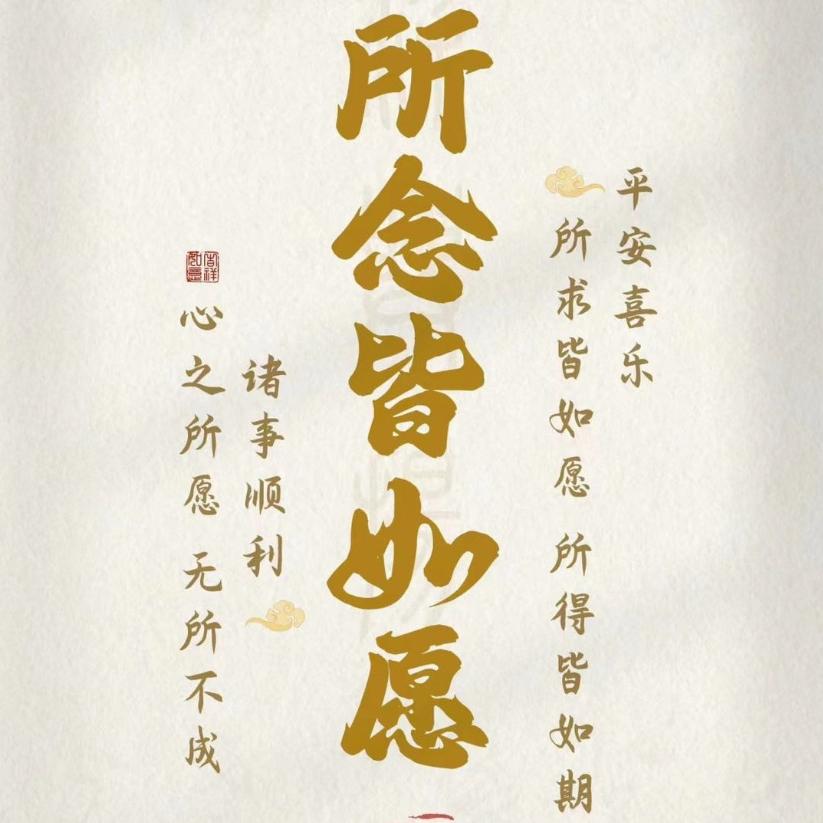 平安喜乐
所求皆如愿 所得皆如期
所念皆如愿
诸事顺利
心之所愿 无所不成
吉祥如意